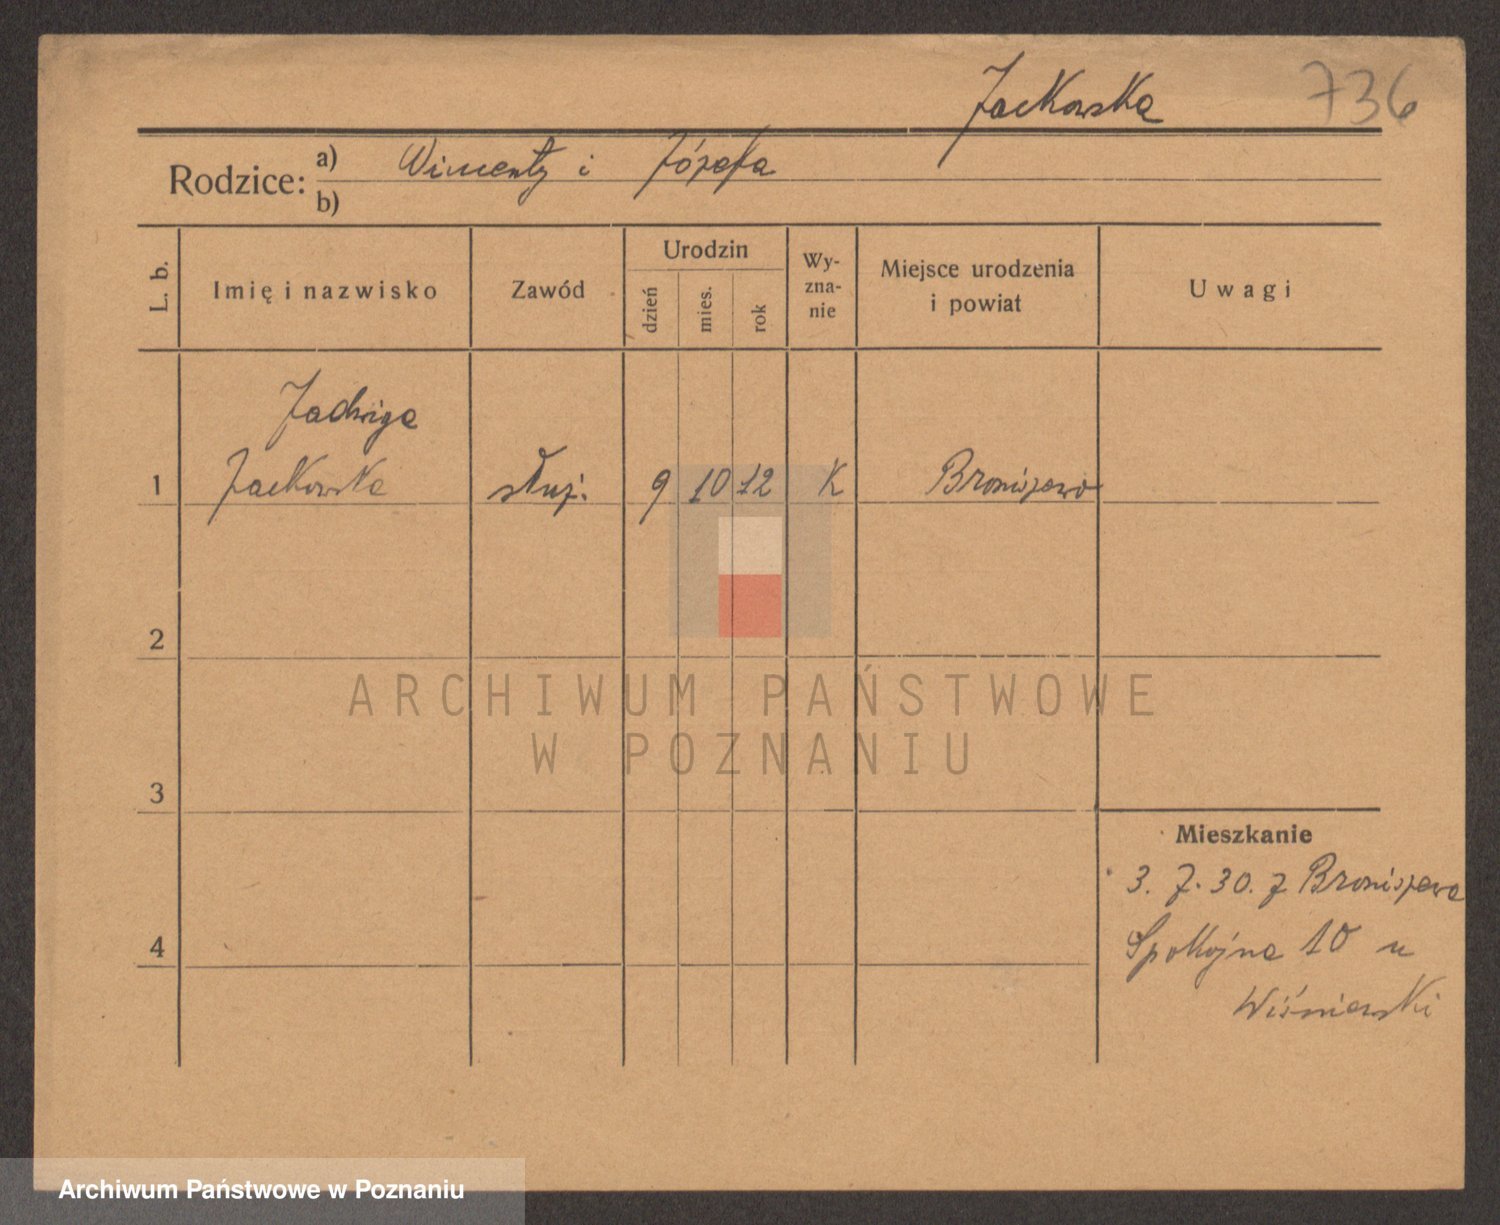 Jackowska 736
Rodzice: a) Wincenty i Józefa
b)
L. b. Imię i nazwisko Zawód Urodzin dzień mies. rok Wy-zna-nie Miejsce urodzenia i powiat Uwagi
Jadwiga
1 Jackowska służ. 9 10 12 K Broniszewo
2
ARCHIWUM PAŃSTWOWE
W POZNANIU
3
Mieszkanie
3. 7. 30. z Broniszewa
4 Spokojna 10 u
Wiśniewski
Archiwum Państwowe w Poznaniu